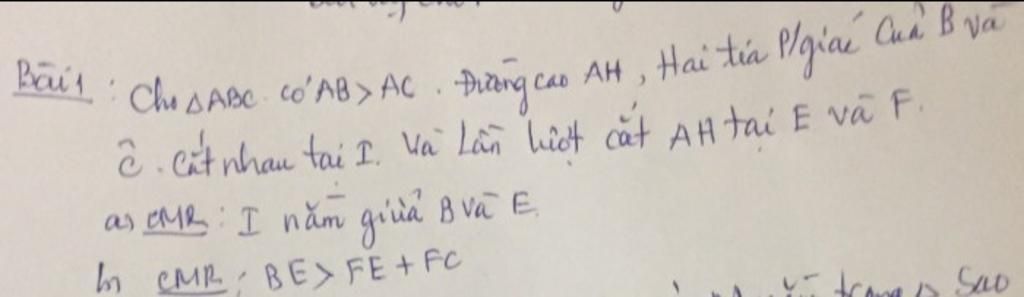 Bài 1 : Cho △ABC có AB > AC. Đường cao AH, Hai tia P/giác của B và
Ĉ. Cắt nhau tại I. Và Lần lượt cắt AH tại E và F.
a) CMR : I nằm giữa B và E.
b) CMR : BE > FE + FC
trong Sao